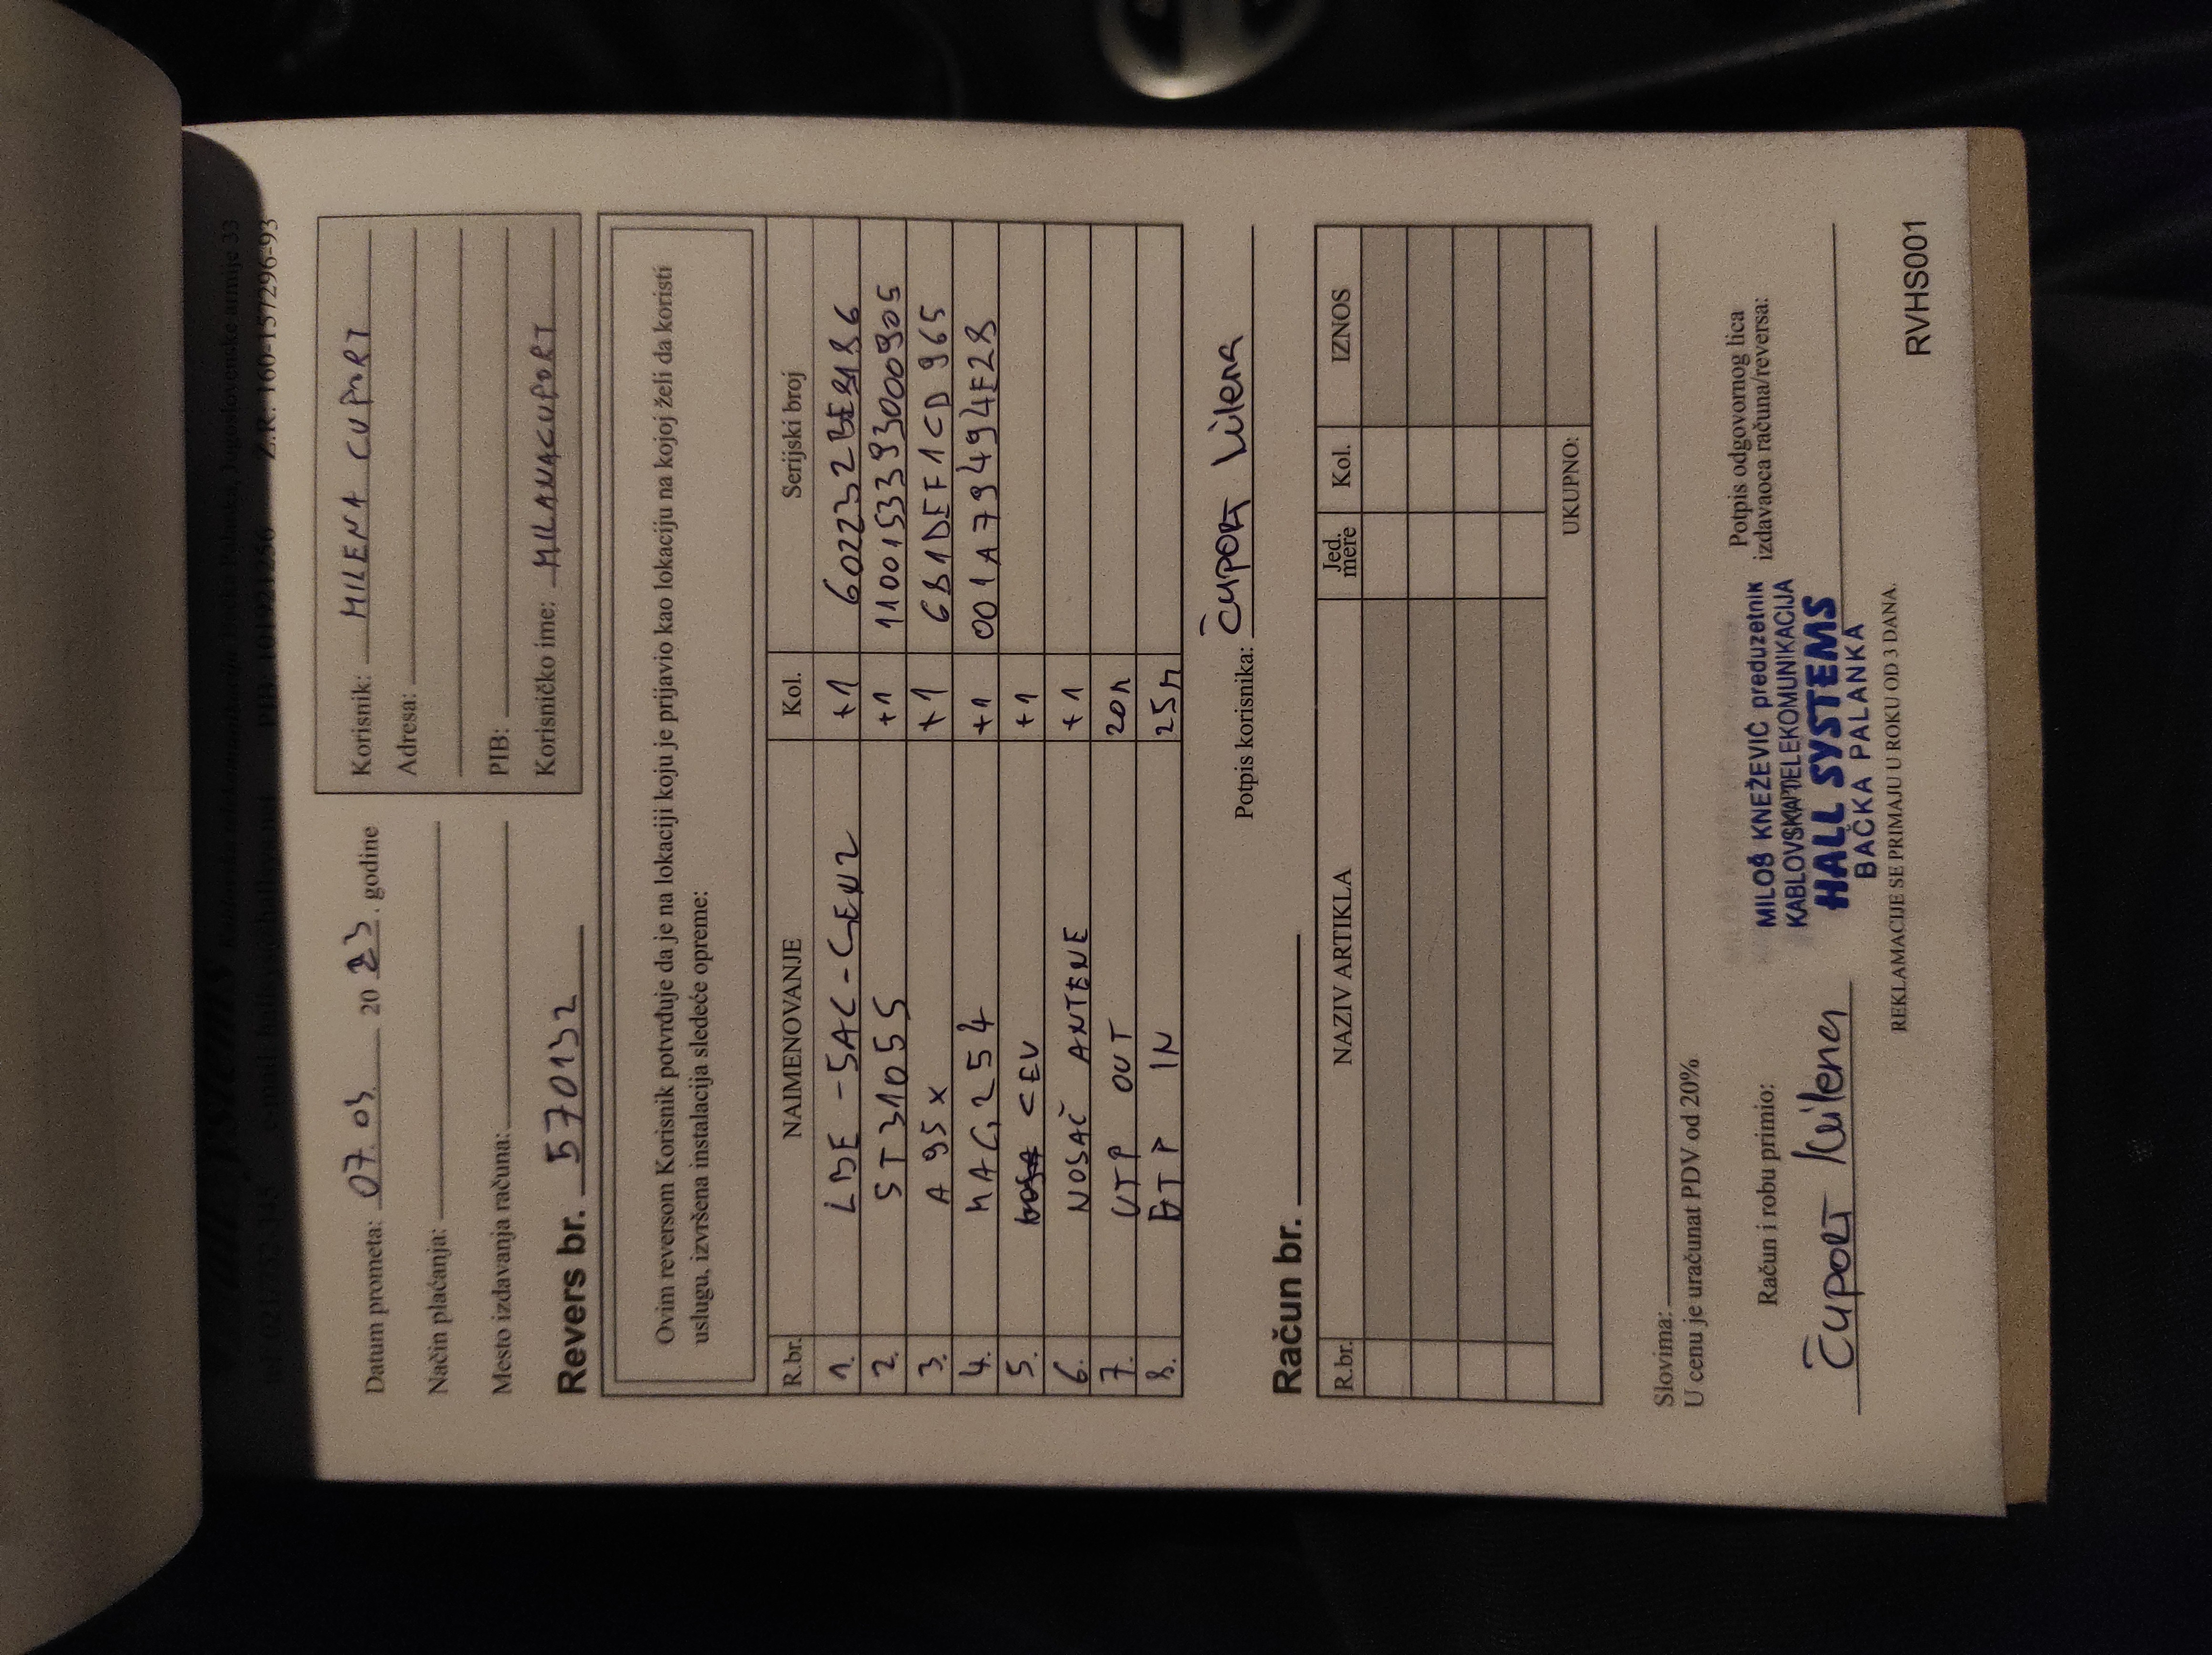 Z.R. 160-157296-93
Datum prometa: 07.03. 2023. godine
Način plaćanja:
Mesto izdavanja računa:
Revers br. 570132
Korisnik: MILENA CUPORT
Adresa:
PIB:
Korisničko ime: MILANACUPORT
Ovim reversom Korisnik potvrđuje da je na lokaciji koju je prijavio kao lokaciju na kojoj želi da koristi
uslugu, izvršena instalacija sledeće opreme:
R.br. NAIMENOVANJE Kol. Serijski broj
1. LBE-5AC-GEN2 +1
2. ST31055 +1 1100153393000905
3. A95X +1 6B1DEF1CD965
4. MAG254 +1 001A79494E28
5. CEV +1
6. NOSAČ ANTENE +1
7. UTP OUT 20m
8. FTP IN 25m
Potpis korisnika: Čuport Milena
Račun br.
R.br. NAZIV ARTIKLA Jed. mere Kol. IZNOS
UKUPNO:
Slovima:
U cenu je uračunat PDV od 20%
Račun i robu primio:
Čuport Milena
MILOŠ KNEŽEVIĆ preduzetnik
KABLOVSKA TELEKOMUNIKACIJA
HALL SYSTEMS
BAČKA PALANKA
Potpis odgovornog lica
izdavaoca računa/reversa:
REKLAMACIJE SE PRIMAJU U ROKU OD 3 DANA.
RVHS001